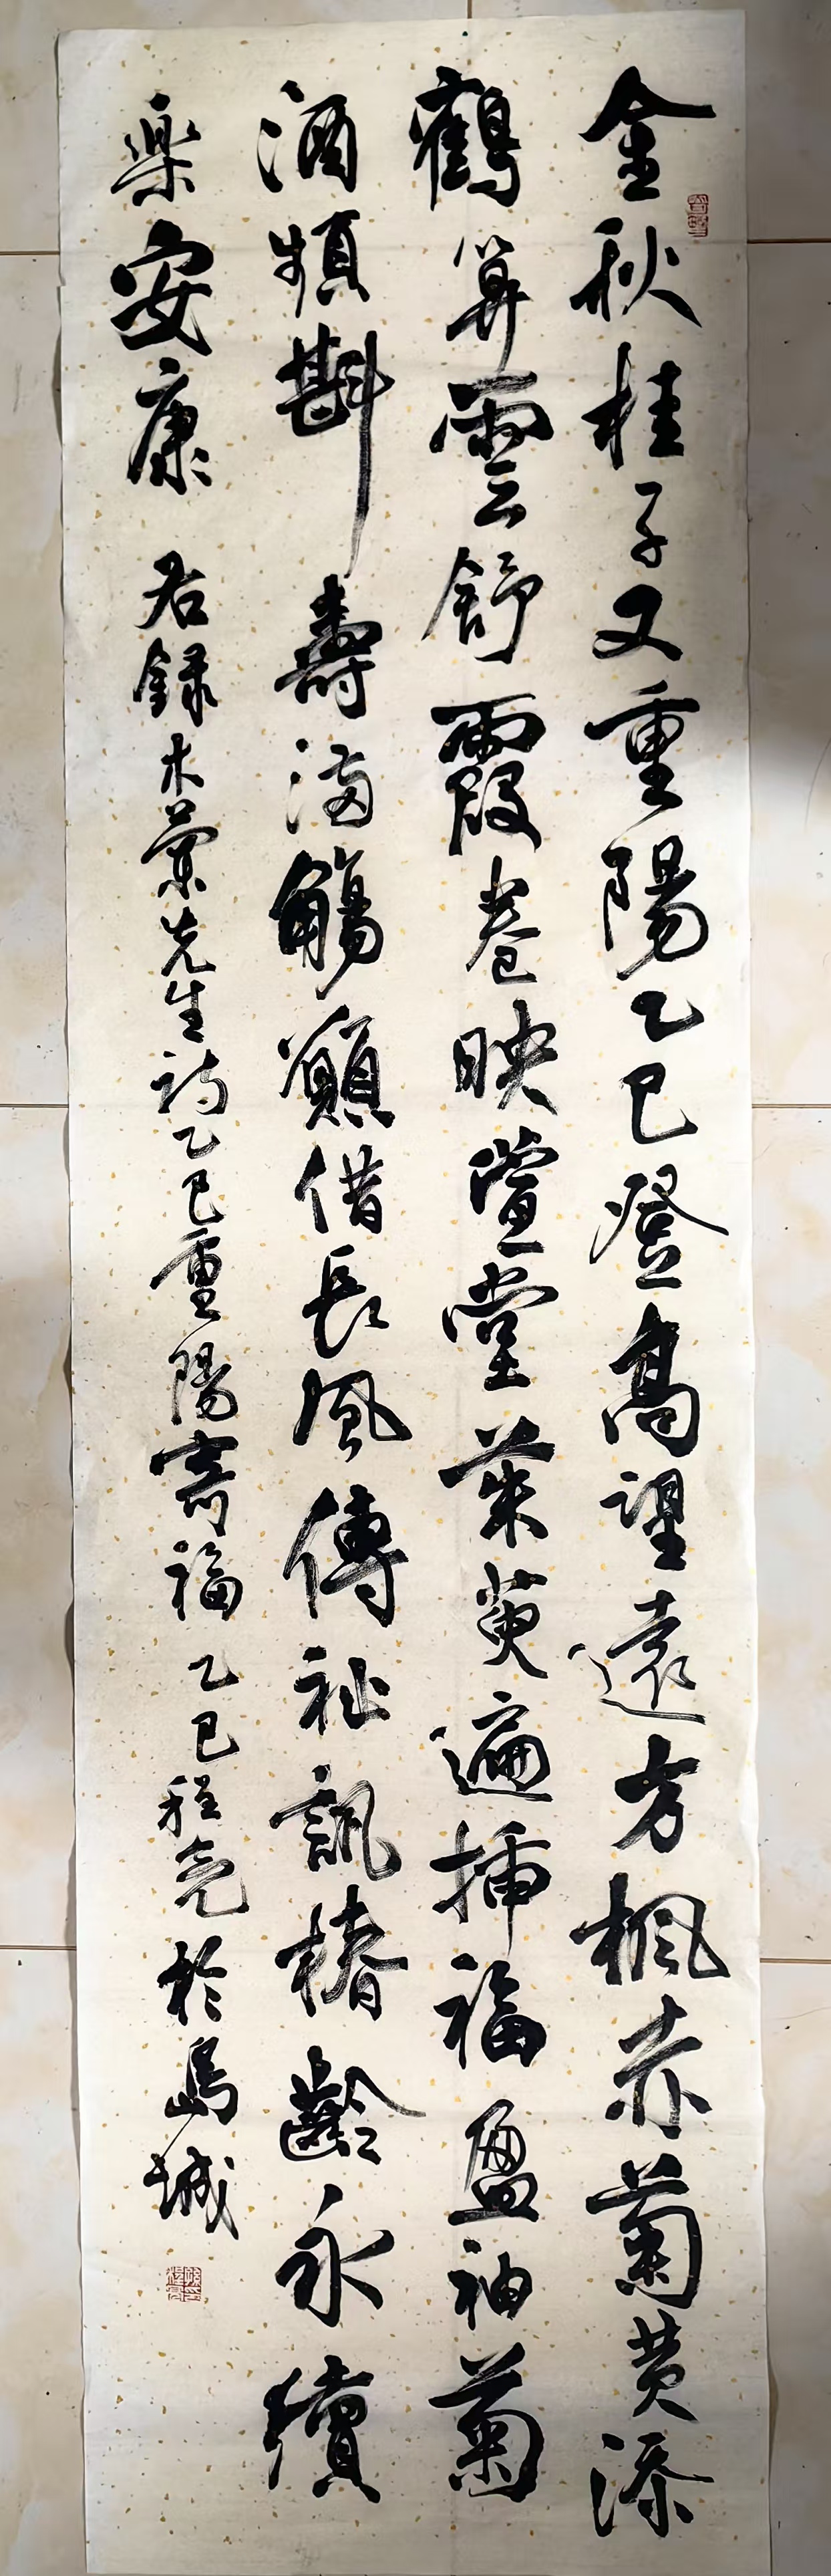 金秋桂子又重陽乙巳登高望遠方楓赤菊黄添
鶴算雲舒霞卷映萱堂茱萸遍插福盈袖菊
酒頻斟壽滿觴願借長風傳祉訊椿齡永續
樂安康 右録木葉先生詩乙巳重陽寄福 乙巳程堯於烏城